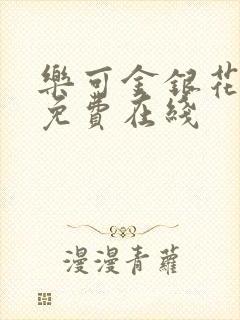 樂可金銀花
免費在綫
漫漫青蘿